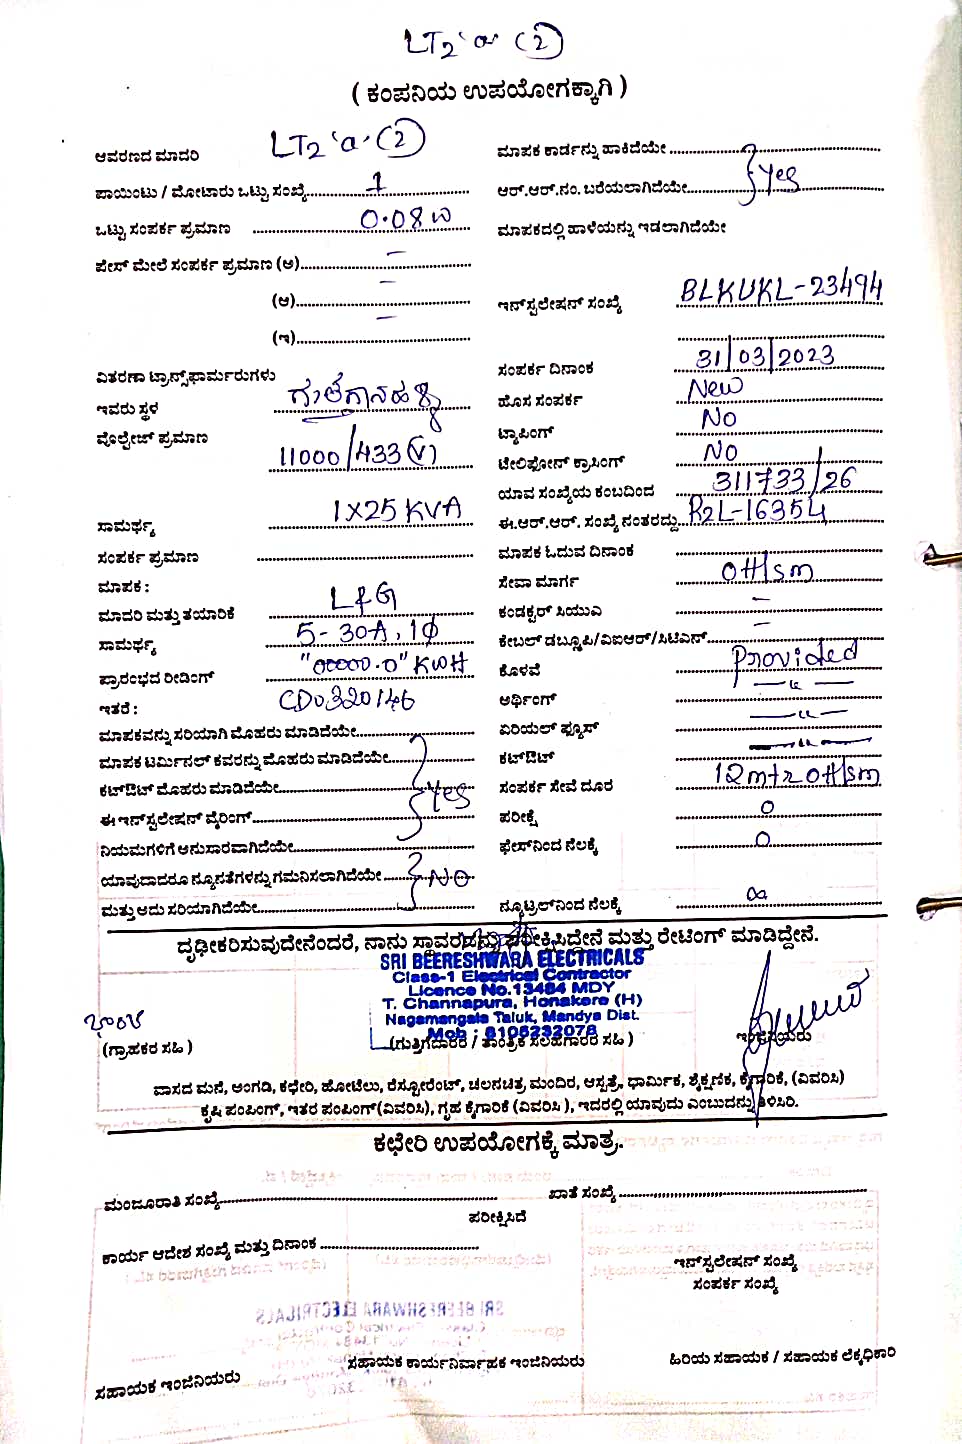 LT2 'a' (2)
( ಕಂಪನಿಯ ಉಪಯೋಗಕ್ಕಾಗಿ )
ಆವರಣದ ಮಾದರಿ LT2 'a' (2)
ಮಾಪಕ ಕಾರ್ಡನ್ನು ಹಾಕಿದೆಯೇ
ಪಾಯಿಂಟು / ಮೋಟಾರು ಒಟ್ಟು ಸಂಖ್ಯೆ 1
ಆರ್.ಆರ್.ನಂ. ಬರೆಯಲಾಗಿದೆಯೇ Yes
ಒಟ್ಟು ಸಂಪರ್ಕ ಪ್ರಮಾಣ 0.08 W
ಮಾಪಕದಲ್ಲಿ ಹಾಳೆಯನ್ನು ಇಡಲಾಗಿದೆಯೇ
ಫೇಸ್ ಮೇಲೆ ಸಂಪರ್ಕ ಪ್ರಮಾಣ (ಅ) –
(ಆ) –
ಇನ್‌ಸ್ಟಲೇಷನ್ ಸಂಖ್ಯೆ BLKUKL-23494
(ಇ) –
ವಿತರಣಾ ಟ್ರಾನ್ಸ್‌ಫಾರ್ಮರುಗಳು
ಸಂಪರ್ಕ ದಿನಾಂಕ 31/03/2023
ಇವರು ಸ್ಥಳ
ಹೊಸ ಸಂಪರ್ಕ New
ವೊಲ್ಟೇಜ್ ಪ್ರಮಾಣ 11000/433(V)
ಟ್ಯಾಪಿಂಗ್ No
ಟೇಲಿಫೋನ್ ಕ್ರಾಸಿಂಗ್ No
ಯಾವ ಸಂಖ್ಯೆಯ ಕಂಬದಿಂದ 311733/26
ಸಾಮರ್ಥ್ಯ 1X25 KVA
ಈ.ಆರ್.ಆರ್. ಸಂಖ್ಯೆ ನಂತರದ್ದು R2L-16354
ಸಂಪರ್ಕ ಪ್ರಮಾಣ
ಮಾಪಕ ಓದುವ ದಿನಾಂಕ
ಮಾಪಕ :
ಸೇವಾ ಮಾರ್ಗ OH/sm
ಮಾದರಿ ಮತ್ತು ತಯಾರಿಕೆ L&G
ಕಂಡಕ್ಟರ್ ಸಿಯುವಿ –
ಸಾಮರ್ಥ್ಯ 5-30A, 1Φ
ಕೇಬಲ್ ಡಬ್ಲೂಪಿ/ವಿಐಆರ್/ಸಿಟಿಎಸ್ –
ಪ್ರಾರಂಭದ ರೀಡಿಂಗ್ "00000.0" KWH
ಕೊಳವೆ Provided
ಇತರೆ : CD0320146
ಆರ್ಥಿಂಗ್ —"—
ಮಾಪಕವನ್ನು ಸರಿಯಾಗಿ ಮೊಹರು ಮಾಡಿದೆಯೇ
ಏರಿಯಲ್ ಫ್ಯೂಸ್ —"—
ಮಾಪಕ ಟರ್ಮಿನಲ್ ಕವರನ್ನು ಮೊಹರು ಮಾಡಿದೆಯೇ
ಕಟ್‌ಔಟ್ —"—
ಕಟ್‌ಔಟ್ ಮೊಹರು ಮಾಡಿದೆಯೇ Yes
ಸಂಪರ್ಕ ಸೇವೆ ದೂರ 12mtr OH/sm
ಈ ಇನ್‌ಸ್ಟಲೇಷನ್ ವೈರಿಂಗ್
ಪರೀಕ್ಷೆ 0
ನಿಯಮಗಳಿಗೆ ಅನುಸಾರವಾಗಿದೆಯೇ
ಫೇಸ್‌ನಿಂದ ನೆಲಕ್ಕೆ 0
ಯಾವುದಾದರೂ ನ್ಯೂನತೆಗಳನ್ನು ಗಮನಿಸಲಾಗಿದೆಯೇ NO
ಮತ್ತು ಅದು ಸರಿಯಾಗಿದೆಯೇ
ನ್ಯೂಟ್ರಲ್‌ನಿಂದ ನೆಲಕ್ಕೆ
ದೃಢೀಕರಿಸುವುದೇನೆಂದರೆ, ನಾನು ಸ್ಥಾವರವನ್ನು ಪರೀಕ್ಷಿಸಿದ್ದೇನೆ ಮತ್ತು ರೇಟಿಂಗ್ ಮಾಡಿದ್ದೇನೆ.
SRI BEERESHWARA ELECTRICALS
Class-1 Electrical Contractor
Licence No.13484 MDY
T. Channapura, Honakere (H)
Nagamangala Taluk, Mandya Dist.
Mob : 8105232078
(ಗ್ರಾಹಕರ ಸಹಿ )
(ಗುತ್ತಿಗೆದಾರರ / ತಾಂತ್ರಿಕ ಸಲಹಗಾರರ ಸಹಿ )
ಇಂಜಿನಿಯರು
ವಾಸದ ಮನೆ, ಅಂಗಡಿ, ಕಛೇರಿ, ಹೋಟೆಲು, ರೆಸ್ಟೋರೆಂಟ್, ಚಲನಚಿತ್ರ ಮಂದಿರ, ಆಸ್ಪತ್ರೆ, ಧಾರ್ಮಿಕ, ಶೈಕ್ಷಣಿಕ, ಕೈಗಾರಿಕೆ, (ವಿವರಿಸಿ)
ಕೃಷಿ ಪಂಪಿಂಗ್, ಇತರ ಪಂಪಿಂಗ್(ವಿವರಿಸಿ), ಗೃಹ ಕೈಗಾರಿಕೆ (ವಿವರಿಸಿ ), ಇದರಲ್ಲಿ ಯಾವುದು ಎಂಬುದನ್ನು ತಿಳಿಸಿರಿ.
ಕಛೇರಿ ಉಪಯೋಗಕ್ಕೆ ಮಾತ್ರ.
ಮಂಜೂರಾತಿ ಸಂಖ್ಯೆ
ಖಾತೆ ಸಂಖ್ಯೆ
ಪರೀಕ್ಷಿಸಿದೆ
ಕಾರ್ಯ ಆದೇಶ ಸಂಖ್ಯೆ ಮತ್ತು ದಿನಾಂಕ
ಇನ್‌ಸ್ಟಲೇಷನ್ ಸಂಖ್ಯೆ
ಸಂಪರ್ಕ ಸಂಖ್ಯೆ
ಸಹಾಯಕ ಇಂಜಿನಿಯರು
ಸಹಾಯಕ ಕಾರ್ಯನಿರ್ವಾಹಕ ಇಂಜಿನಿಯರು
ಹಿರಿಯ ಸಹಾಯಕ / ಸಹಾಯಕ ಲೆಕ್ಕಧಿಕಾರಿ